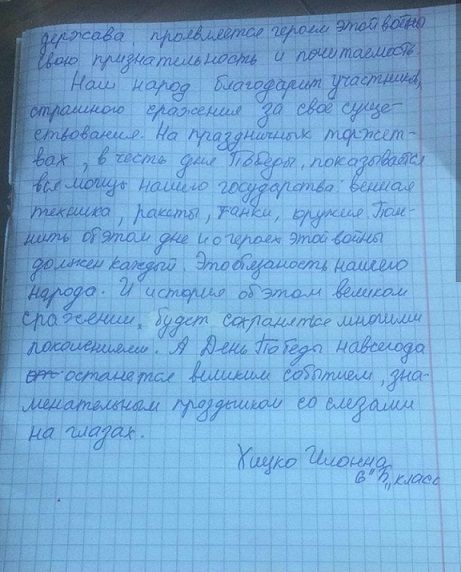 держава, проявляется героем этой войны
свою признательность и почитаемость.
Наш народ благодарит участников,
страшного сражения за своё суще-
ствования. На праздничных торжет-
вах, в честь дня Победы, показывается
вся мощь нашего государства: венная
техника, ракеты, танки, оружия. Пом-
нить об этом дне и о героях этой войны
должен каждый. Это обязаность нашего
народа. И история об этом великом
сражении, будет сохранятся многими
поколениями. А День Победы навсегда
останется великим событием, зна-
менательным праздником со слезами
на глазах.
Хицко Илонна
6 "Б" класс